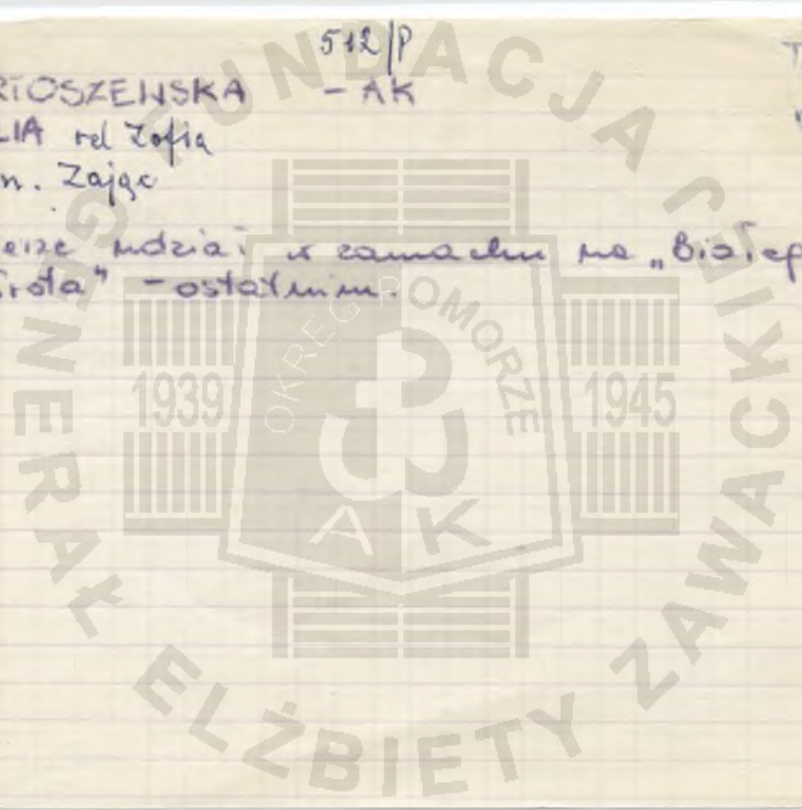 512/P
RTOSZEWSKA - AK
LIA rel Zofia
n. Zając
erze udział w zamachu na „Białeg
rota" - ostatnim.
FUNDACJA GENERAŁ ELŻBIETY ZAWACKIEJ
OKRĘG POMORZE
1939 1945
AK